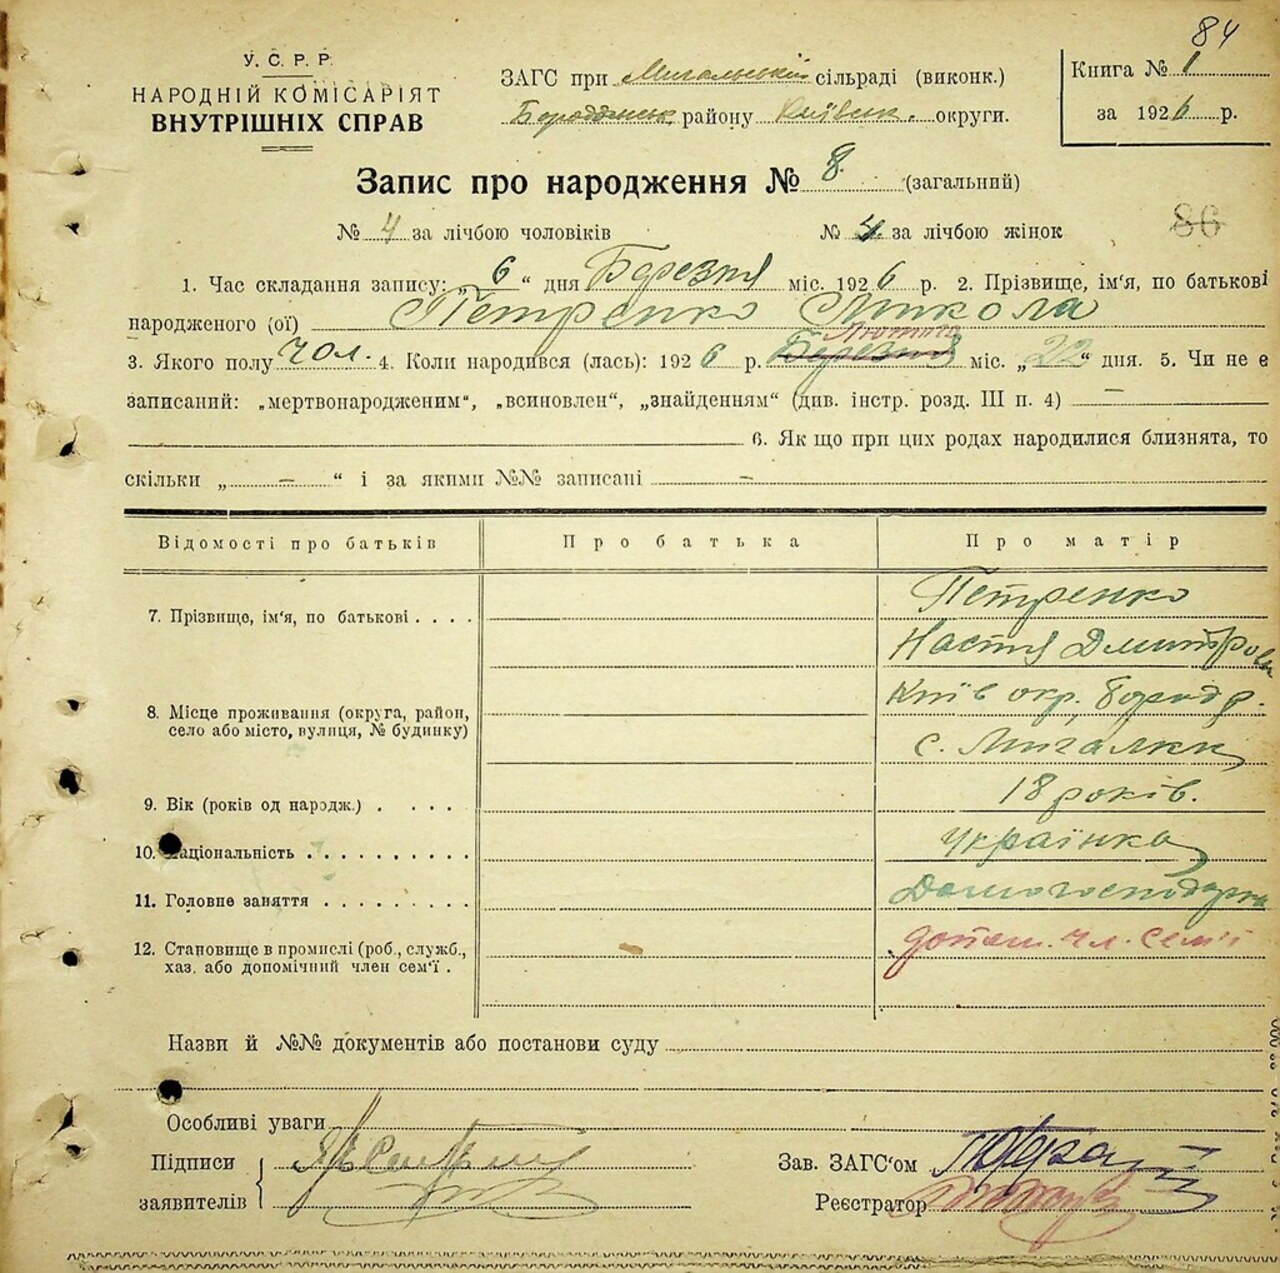 84
У. С. Р. Р.
НАРОДНІЙ КОМІСАРІЯТ
ВНУТРІШНІХ СПРАВ
ЗАГС при Мигальській сільраді (виконк.)
Бородянськ. району Київськ. округи.
Книга № 1
за 1926 р.
Запис про народження № 8. (загальний)
№ 4 за лічбою чоловіків № 4 за лічбою жінок
86
1. Час складання запису: „6“ дня Березня міс. 1926 р. 2. Прізвище, ім'я, по батькові
народженого (ої) Петренко Микола
Лютого
3. Якого полу чол. 4. Коли народився (лась): 1926 р. Березня міс. „22“ дня. 5. Чи не є
записаний: „мертвонародженим“, „всиновлен“, „знайденням“ (див. інстр. розд. III п. 4) —
6. Як що при цих родах народилися близнята, то
скільки „ — “ і за якими №№ записані —
Відомості про батьків Про батька Про матір
7. Прізвище, ім'я, по батькові . . . . Петренко
Настя Дмитрови
8. Місце проживання (округа, район, село або місто, вулиця, № будинку) Київ окр. Бород р.
с. Мигалки
9. Вік (років од народж.) . . . . 18 років.
10. Національність . . . . . . . . . . Українка
11. Головне заняття . . . . . . . . . Домогосподарка
12. Становище в промислі (роб., служб., допом. чл. сем'ї
хаз. або допомічний член сем'ї .
Назви й №№ документів або постанови суду
Особливі уваги
Підписи
заявителів
Зав. ЗАГС'ом
Реєстратор